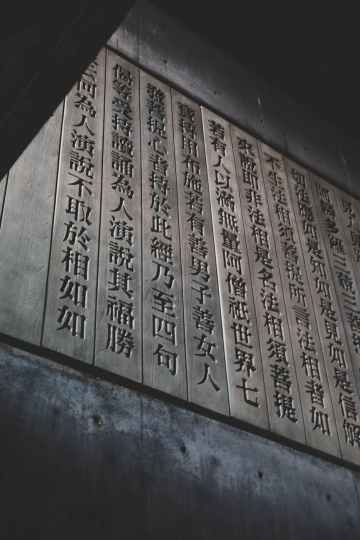 耨多羅三藐三
如是知如是見如是信解
不生法相須菩提所言法相者如
來說即非法相是名法相須菩提
若有人以滿無量阿僧祇世界七
寶持用布施若有善男子善女人
發菩提心者持於此經乃至四句
偈等受持讀誦為人演說其福勝
云何為人演說不取於相如如